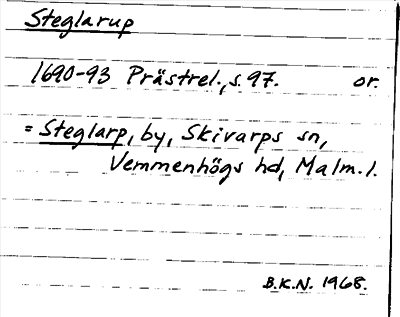 Steglarup
1690-93 Prästrel., s. 97. or.
= Steglarp, by, Skivarps sn,
Vemmenhögs hd, Malm. l.
B.K.N. 1968.